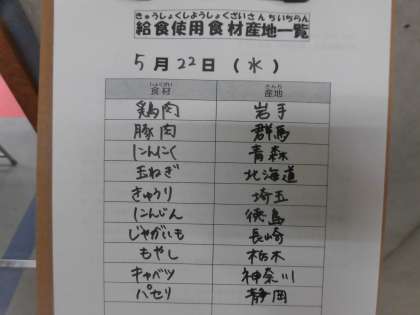 きゅうしょくしようしょくざいさんちいちらん
給食使用食材産地一覧
5月22日(水)
しょくざい さんち
食材 産地
鶏肉 岩手
豚肉 群馬
にんにく 青森
玉ねぎ 北海道
きゅうり 埼玉
にんじん 徳島
じゃがいも 長崎
もやし 栃木
キャベツ 神奈川
パセリ 静岡